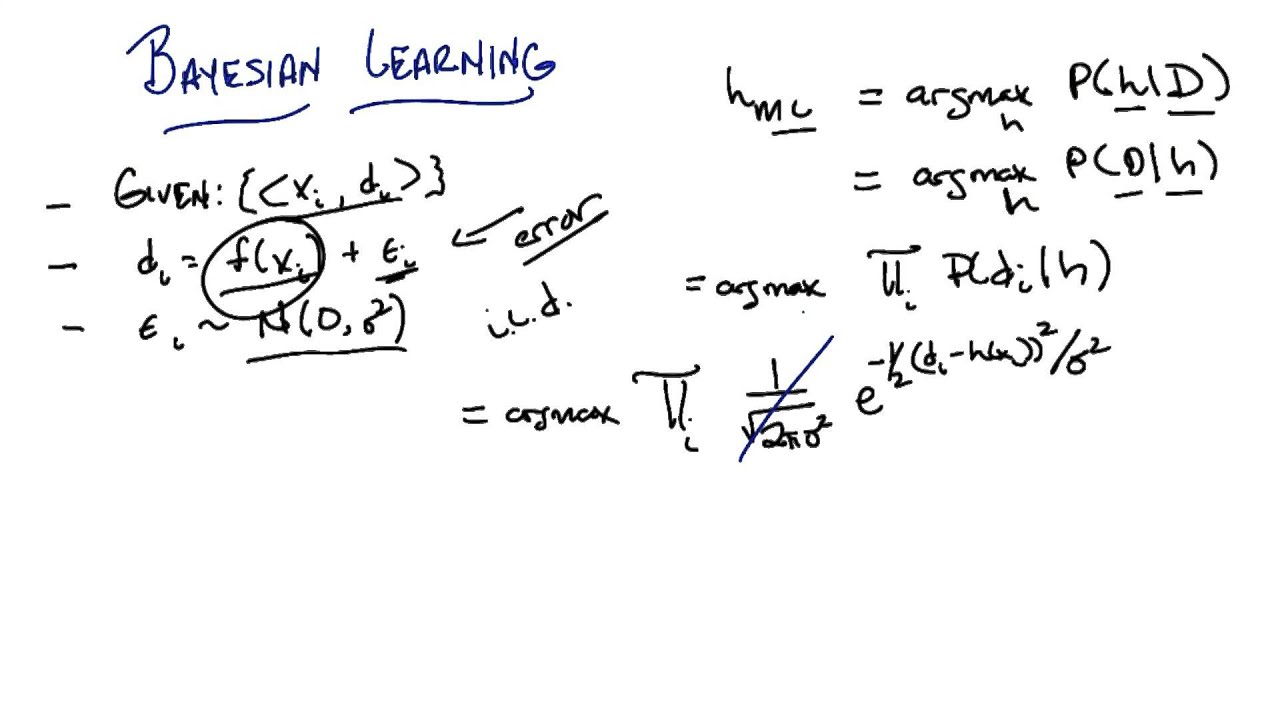 BAYESIAN LEARNING
- GIVEN: {<xᵢ, dᵢ>}
- dᵢ = f(xᵢ) + εᵢ ← error
- εᵢ ~ N(0, σ²) i.i.d.
h_ML = argmax_h P(h|D)
= argmax_h P(D|h)
= argmax ∏ᵢ P(dᵢ|h)
= argmax ∏ᵢ 1/√(2πσ²) e^(-½(dᵢ-h(xᵢ))²/σ²)